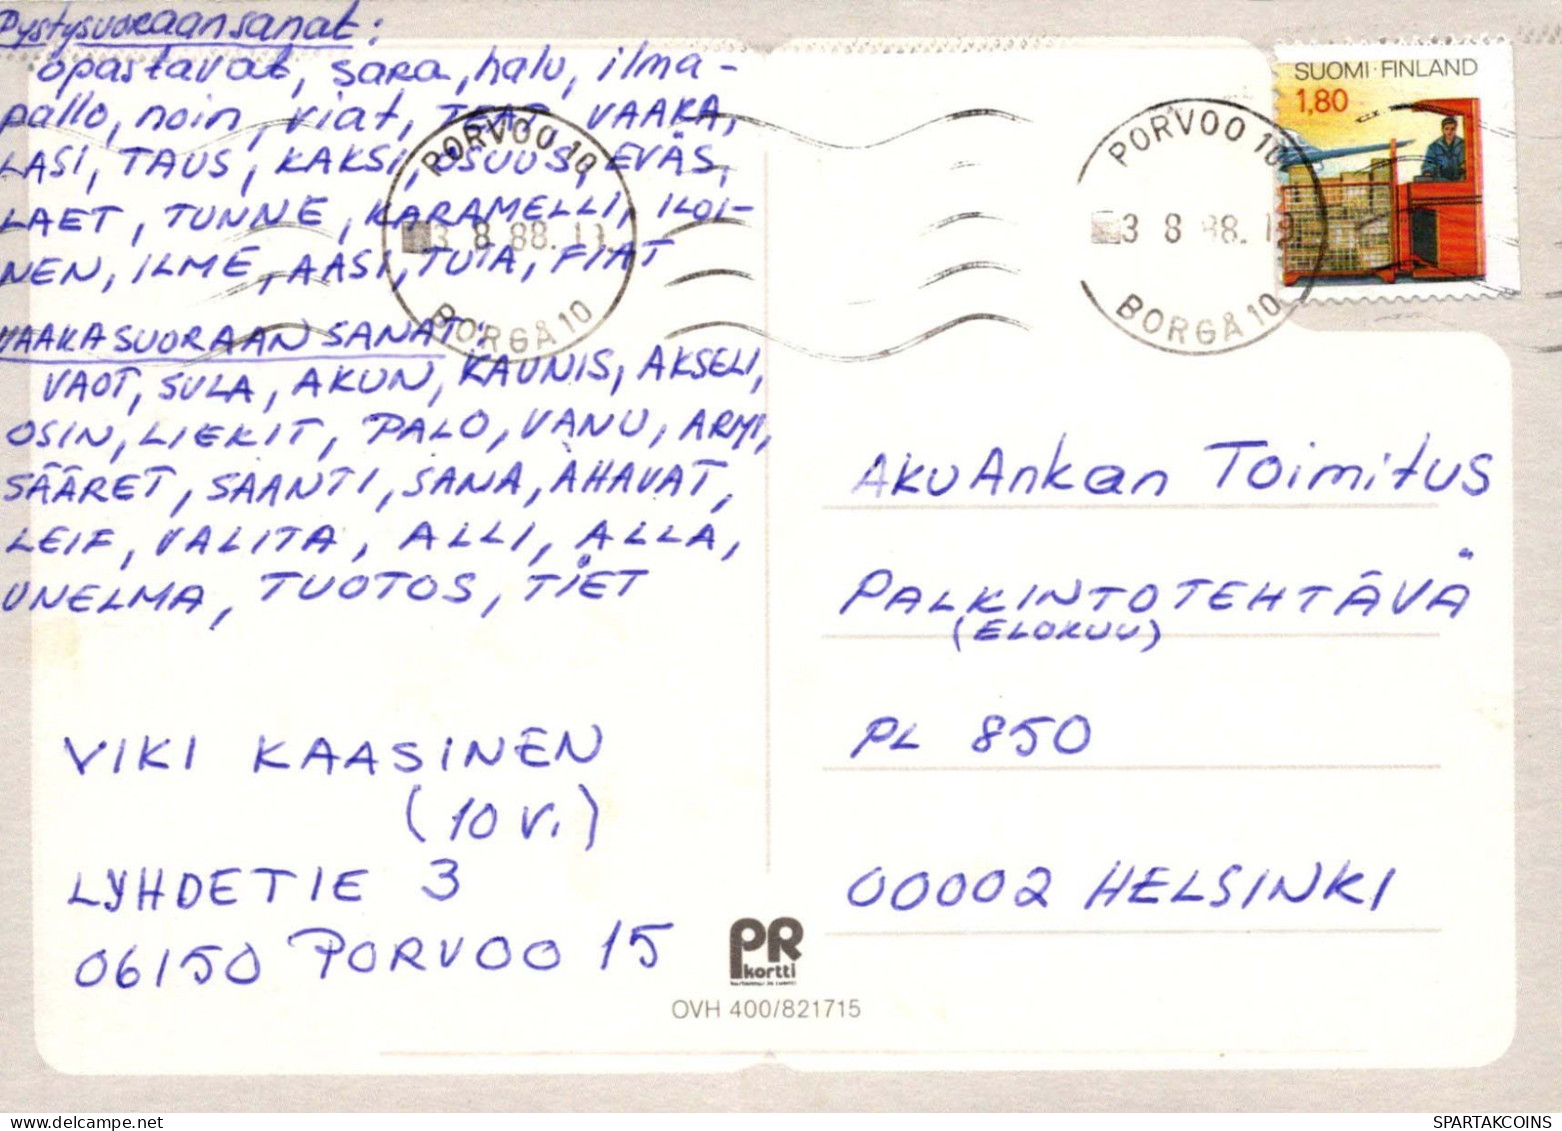 Pystysuoraan sanat:
opastavat, sara, halu, ilma-
pallo, noin, viat, TEAT, VAAKA,
LASI, TAUS, KAKSI, OSUUS, EVÄS,
LAET, TUNNE, KARAMELLI, ILOI-
NEN, ILME, AASI, TUIA, FIAT
VAAKASUORAAN SANAT:
VAOT, SULA, AKUN, KAUNIS, AKSELI,
OSIN, LIEKIT, PALO, VANU, ARMI,
SÄÄRET, SAANTI, SANA, AHAVAT,
LEIF, VALITA, ALLI, ALLA,
UNELMA, TUOTOS, TIET
VIKI KAASINEN
(10 v.)
LYHDETIE 3
06150 PORVOO 15
PORVOO 10
3 8 88.
BORGÅ 10
PORVOO 10
3 8 88.
BORGÅ 10
SUOMI·FINLAND
1,80
AKU Ankan Toimitus
PALKINTOTEHTÄVÄ
(ELOKUU)
PL 850
00002 HELSINKI
PR
kortti
OVH 400/821715
SPARTAKCOINS